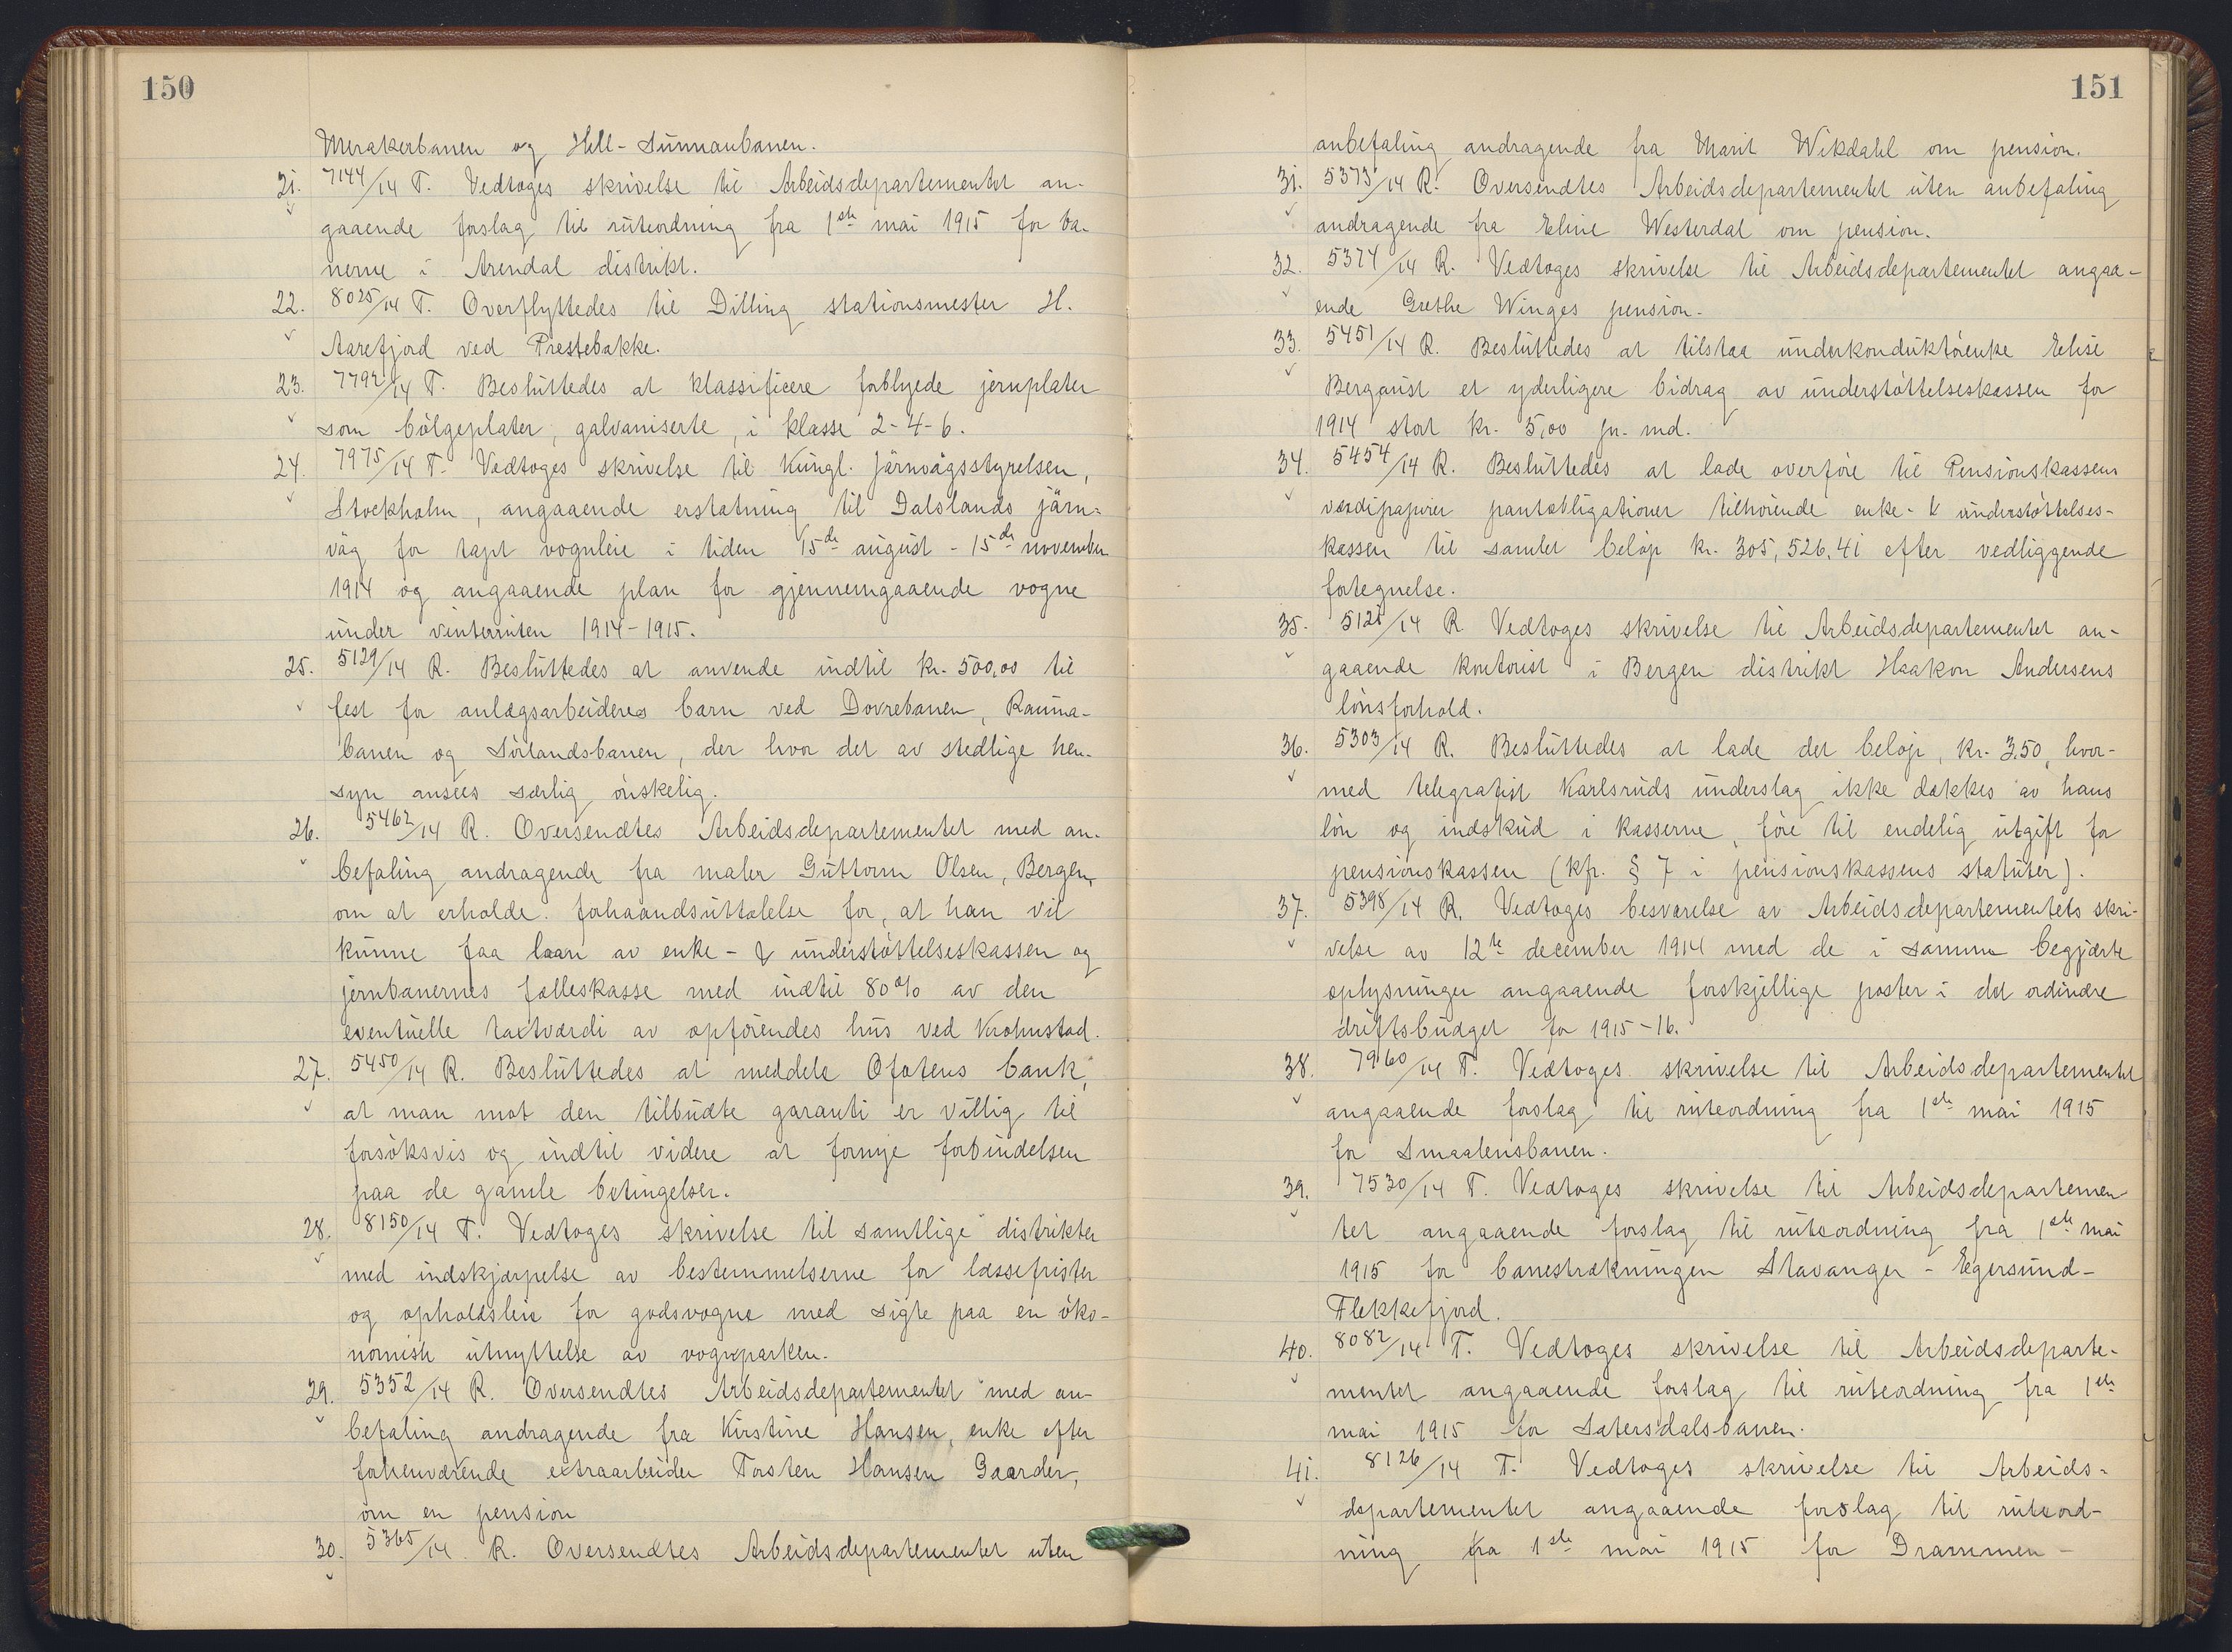 150
Merakerbanen og Hell-Sunnanbanen.
21. 7144/14 T. Vedtoges skrivelse til Arbeidsdepartementet an-
gaaende forslag til ruteordning fra 1ste mai 1915 for ba-
nerne i Arendal distrikt.
22. 8025/14 T. Overflyttedes til Dilling stationsmester H.
Aarefjord ved Prestebakke.
23. 7792/14 T. Besluttedes at klassificere forblyede jernplater
som bölgeplater, galvaniserte, i klasse 2-4-6.
24. 7975/14 T. Vedtoges skrivelse til Kungl. Järnvägsstyrelsen,
Stockholm, angaaende erstatning til Dalslands järn-
väg for tapt vognleie i tiden 15de august - 15de november
1914 og angaaende plan for gjennemgaaende vogne
under vinterruten 1914-1915.
25. 5129/14 R. Besluttedes at anvende indtil kr. 500,00 til
fest for anlægsarbeideres barn ved Dovrebanen, Rauma-
banen og Sörlandsbanen, der hvor det av stedlige hen-
syn ansees særlig önskelig.
26. 5462/14 R. Oversendtes Arbeidsdepartementet med an-
befaling andragende fra maler Guttorm Olsen, Bergen,
om at erholde forhaandsuttalelse for, at han vil
kunne faa laan av enke- & understöttelseskassen og
jernbanernes fælleskasse med indtil 80% av den
eventuelle taxtværdi av opförendes hus ved Krohnstad.
27. 5450/14 R. Besluttedes at meddele Ofotens bank,
at man mot den tilbudte garanti er villig til
forsöksvis og indtil videre at fornye forbindelsen
paa de gamle betingelser.
28. 8150/14 T. Vedtoges skrivelse til samtlige distrikter
med indskjærpelse av bestemmelserne for læssefrister
og opholdsleie for godsvogne med sigte paa en öko-
nomisk utnyttelse av vognparken.
29. 5352/14 R. Oversendtes Arbeidsdepartementet med an-
befaling andragende fra Kirstine Hansen, enke efter
forhenværende extraarbeider Torsten Hansen Gaarder,
om en pension
30. 5365/14 R. Oversendtes Arbeidsdepartementet uten
151
anbefaling andragende fra Marit Wikdahl om pension.
31. 5373/14 R. Oversendtes Arbeidsdepartementet uten anbefaling
andragende fra Eline Westerdal om pension.
32. 5374/14 R. Vedtoges skrivelse til Arbeidsdepartementet angaa-
ende Grethe Winges pension.
33. 5451/14 R. Besluttedes at tilstaa underkonduktörenke Elise
Bergquist et yderligere bidrag av understöttelseskassen for
1914 stort kr. 5,00 pr. md.
34. 5454/14 R. Besluttedes at lade overföre til Pensionskassens
værdipapirer pantobligationer tilhörende enke- & understöttelses-
kassen til samlet belöp kr. 305,526.41 efter vedliggende
fortegnelse.
35. 5121/14 R Vedtoges skrivelse til Arbeidsdepartementet an-
gaaende kontorist i Bergen distrikt Haakon Andersens
lönsforhold.
36. 5303/14 R. Besluttedes at lade det belöp, kr. 3.50, hvor-
med telegrafist Karlsruds underslag ikke dækkes av hans
lön og indskud i kasserne, före til endelig utgift for
pensionskassen (kfr. § 7 i pensionskassens statuter).
37. 5398/14 R. Vedtoges besvarelse av Arbeidsdepartementets skri-
velse av 12te december 1914 med de i samme begjærte
oplysninger angaaende forskjellige poster i det ordinære
driftsbudget for 1915-16.
38. 7960/14 T. Vedtoges skrivelse til Arbeidsdepartementet
angaaende forslag til ruteordning fra 1ste mai 1915
for Smaalensbanen.
39. 7530/14 T. Vedtoges skrivelse til Arbeidsdepartemen-
tet angaaende forslag til ruteordning fra 1ste mai
1915 for banestrækningen Stavanger - Egersund-
Flekkefjord.
40. 8082/14 T. Vedtoges skrivelse til Arbeidsdeparte-
mentet angaaende forslag til ruteordning fra 1ste
mai 1915 for Sætersdalsbanen.
41. 8126/14 T. Vedtoges skrivelse til Arbeids-
departementet angaaende forslag til ruteord-
ning fra 1ste mai 1915 for Drammen-